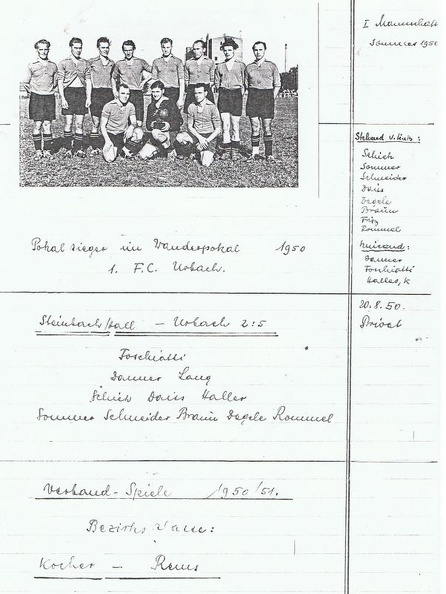 I Mannschaft
Sommer 1950
Stehend v. links:
Schick
Sommer
Schneider
Daiss
Degele
Braun
Fritz
Rommel
knieend:
Danner
Foschiatti
Haller, K
Pokalsieger im Wanderpokal 1950
1. F.C. Urbach.
20.8.50.
Privat
Steinbach/Hall – Urbach 2:5
Foschiatti
Danner Lang
Schick Daiss Haller
Sommer Schneider Braun Degele Rommel
Verband-Spiele 1950/51.
Bezirks
Kocher – Rems